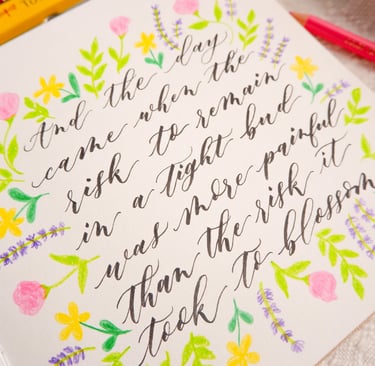 And the day
came when the
risk to remain
in a tight bud
was more painful
than the risk it
took to blossom